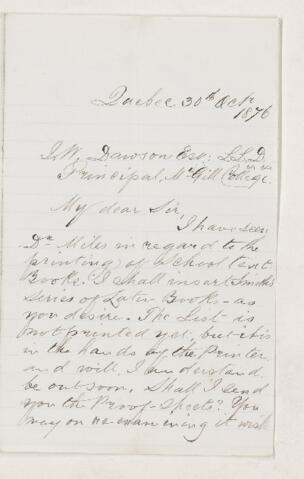 Quebec 30th Octr
1876
J. W. Dawson Esq: LL.D
Principal, McGill College
My dear Sir,
I have seen
Dr Miles in regard to the
printing of School text
Books. I shall insert Smith's
Series of Latin Books - as
you desire. The List is
not printed yet, but it is
in the hands of the Printer
and will, I understand
be out soon. Shall I send
you the Proof-Sheets? You
may on re-examining it wish